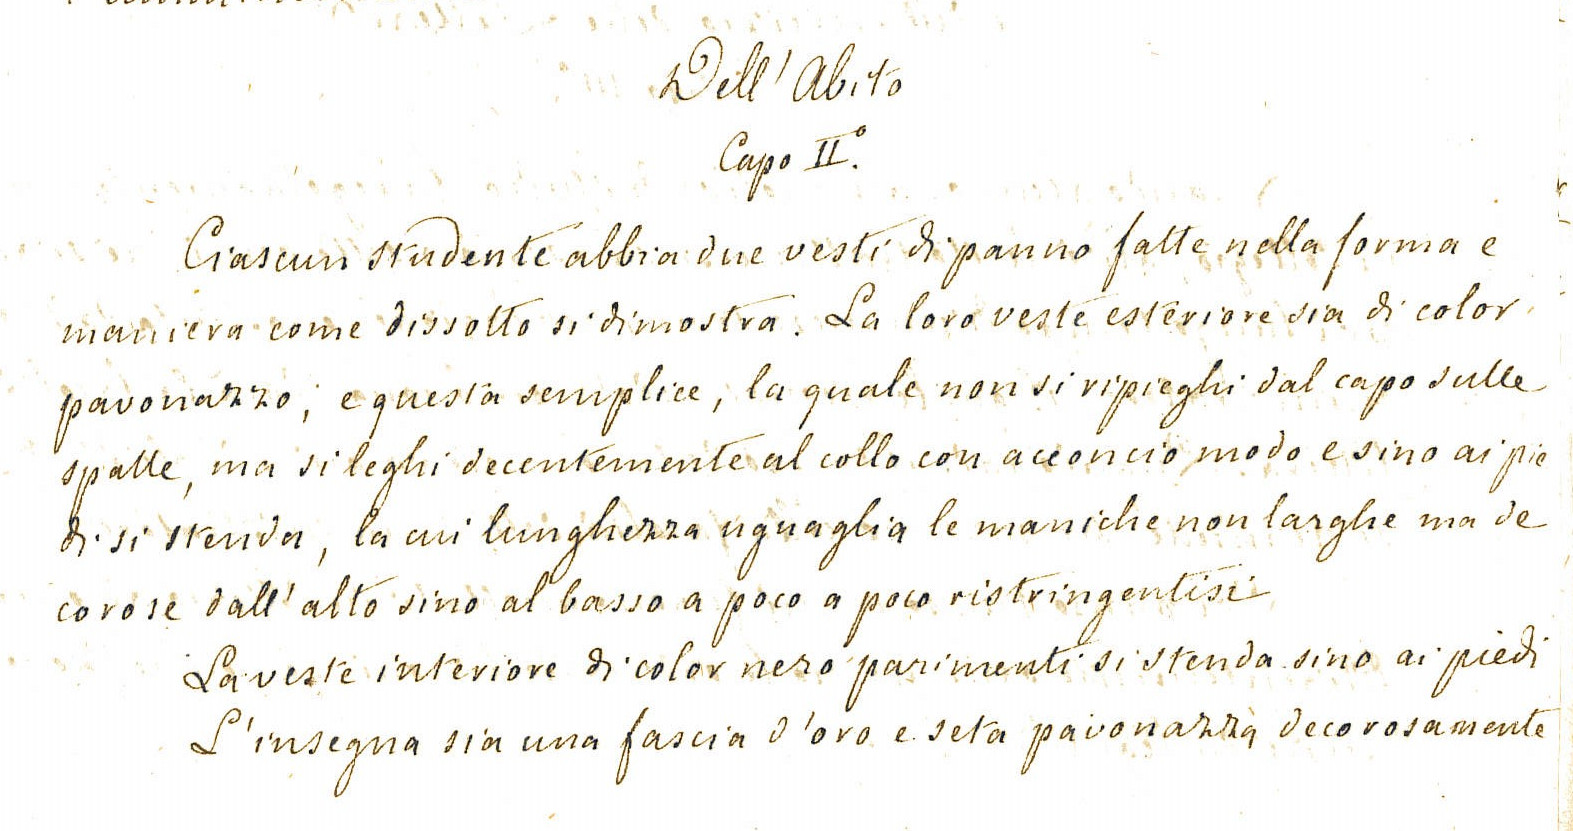 Dell' Abito
Capo II.º
Ciascun studente abbia due vesti di panno fatte nella forma e
maniera come dissotto si dimostra. La loro veste esteriore sia di color
pavonazzo, e questa semplice, la quale non si ripieghi dal capo sulle
spalle, ma si leghi decentemente al collo con acconcio modo e sino ai pie
di si stenda, la cui lunghezza uguaglia le maniche non larghe ma de
corose dall' alto sino al basso a poco a poco ristringentisi
La veste interiore di color nero parimenti si stenda sino ai piedi
L' insegna sia una fascia d'oro e seta pavonazza decorosamente